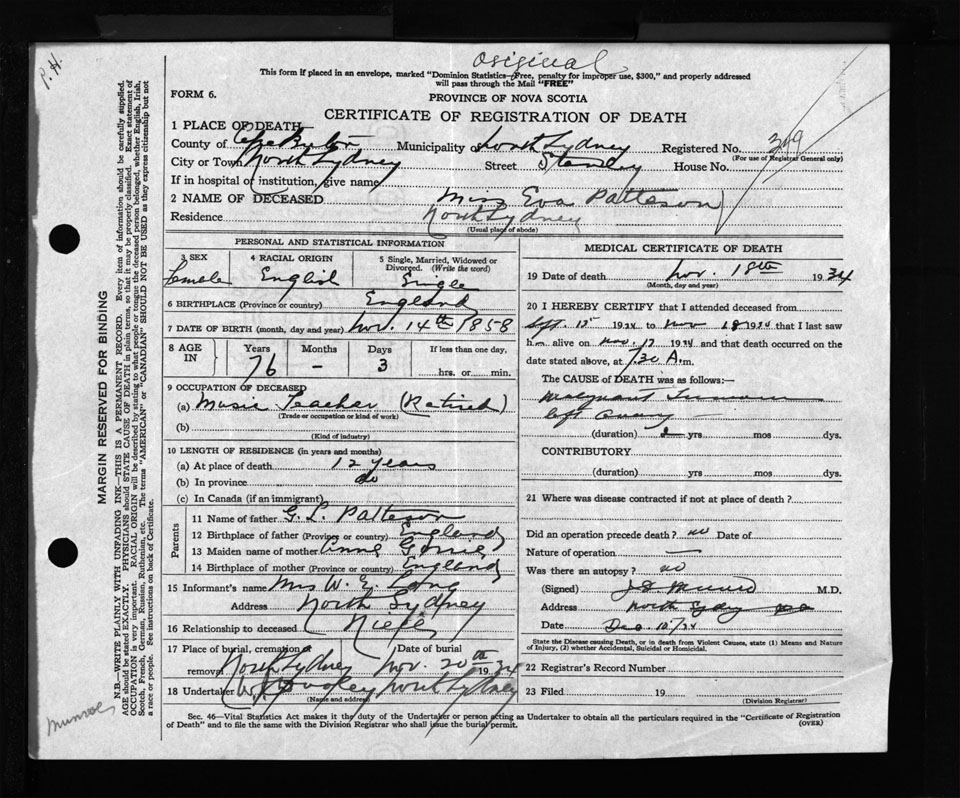 Original
This form if placed in an envelope, marked "Dominion Statistics—Free, penalty for improper use, $300," and properly addressed
will pass through the Mail "FREE"
P. H.
FORM 6.
PROVINCE OF NOVA SCOTIA
CERTIFICATE OF REGISTRATION OF DEATH
1 PLACE OF DEATH
County of Cape Breton Municipality of North Sydney Registered No. 349
(For use of Registrar General only)
City or Town North Sydney Street Stanley House No.
If in hospital or institution, give name
2 NAME OF DECEASED Miss Eva Patteson
Residence North Sydney
(Usual place of abode)
PERSONAL AND STATISTICAL INFORMATION
3 SEX Female
4 RACIAL ORIGIN English
5 Single, Married, Widowed or Divorced. (Write the word) Single
6 BIRTHPLACE (Province or country) England
7 DATE OF BIRTH (month, day and year) Nov. 14th 1858
8 AGE IN Years 76 Months - Days 3 If less than one day, hrs. or min.
9 OCCUPATION OF DECEASED
(a) Music Teacher (Retired)
(Trade or occupation or kind of work)
(b)
(Kind of industry)
10 LENGTH OF RESIDENCE (in years and months)
(a) At place of death 12 years
(b) In province do
(c) In Canada (if an immigrant)
Parents
11 Name of father G. L. Patteson
12 Birthplace of father (Province or country) England
13 Maiden name of mother Anne
14 Birthplace of mother (Province or country) England
15 Informant's name Mrs W. E.
Address North Sydney
16 Relationship to deceased Niece
17 Place of burial, cremation or removal North Sydney Date of burial Nov. 20th 1934
18 Undertaker North Sydney
(Name and address)
MEDICAL CERTIFICATE OF DEATH
19 Date of death Nov. 18th 1934
(Month, day and year)
20 I HEREBY CERTIFY that I attended deceased from
Sept. 15 1934 to Nov 18 1934 that I last saw
h alive on Nov. 17 1934 and that death occurred on the
date stated above, at 7.30 A.m.
The CAUSE of DEATH was as follows:—
Malignant Tumour
left Ovary
(duration) 2 yrs mos dys.
CONTRIBUTORY
(duration) yrs mos dys.
21 Where was disease contracted if not at place of death?
Did an operation precede death? no Date of
Nature of operation —
Was there an autopsy? no
(Signed) Munro M.D.
Address North Sydney
Date Dec 10/34
State the Disease causing Death, or in death from Violent Causes, state (1) Means and Nature
of Injury, (2) whether Accidental, Suicidal or Homicidal.
22 Registrar's Record Number
23 Filed 19
(Division Registrar)
Sec. 46—Vital Statistics Act makes it the duty of the Undertaker or person acting as Undertaker to obtain all the particulars required in the "Certificate of Registration
of Death" and to file the same with the Division Registrar who shall issue the burial permit. (OVER)
MARGIN RESERVED FOR BINDING
N.B.—WRITE PLAINLY WITH UNFADING INK—THIS IS A PERMANENT RECORD. Every item of information should be carefully supplied.
AGE should be stated EXACTLY. PHYSICIANS should STATE CAUSE OF DEATH in plain terms, so that it may be properly classified. Exact statement of
OCCUPATION is very important. RACIAL ORIGIN will be described by stating to what people or tongue the deceased person belonged, whether English, Irish,
Scotch, French, German, Russian, Ruthenian, etc. The terms "AMERICAN" or "CANADIAN" SHOULD NOT BE USED as they express citizenship but not
a race or people. See instructions on back of Certificate.
Munroe